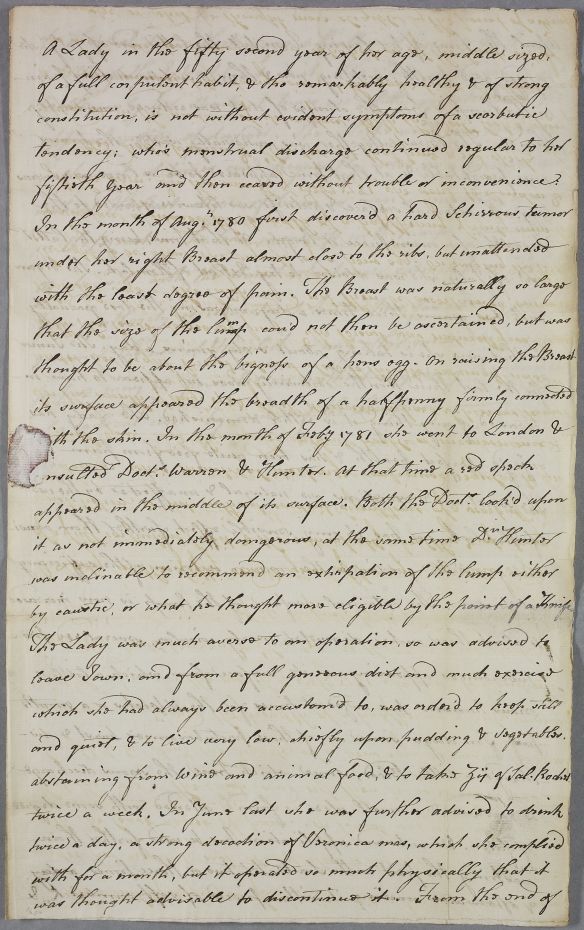 A Lady in the fifty second year of her age, middle sized,
of a full corpulent habit, & tho remarkably healthy & of strong
constitution, is not without evident symptoms of a scorbutic
tendency; who's menstrual discharge continued regular to her
fiftieth year and then ceased without trouble or inconvenience.
In the month of Augt. 1780 first discover'd a hard Schirrous tumor
under her right Breast almost close to the ribs, but unattended
with the least degree of pain. The Breast was naturally so large
that the size of the lump could not then be ascertained, but was
thought to be about the bigness of a hens egg. On raising the Breast
its surface appeared the breadth of a halfpenny firmly connected
ith the skin. In the month of Feby. 1781 she went to London &
nsulted Doctrs. Warren & Hunter. At that time a red speck
appeared in the middle of its surface. Both the Doctrs. look'd upon
it as not immediately dangerous, at the same time Dr. Hunter
was inclinable to recommend an extirpation of the lump either
by caustic, or what he thought more eligible by the point of a Knife
The Lady was much averse to an operation, so was advised to
leave Town, and from a full generous diet and much exercise
which she had always been accustom'd to, was order'd to keep still
and quiet, & to live very low, chiefly upon pudding & vegetables.
abstaining from wine and animal food, & to take ʒij of Sal. Rochel
twice a week. In June last she was further advised to drink
twice a day, a strong decoction of Veronica mas, which she complied
with for a month, but it operated so much physically that it
was thought advisable to discontinue it. From the end of